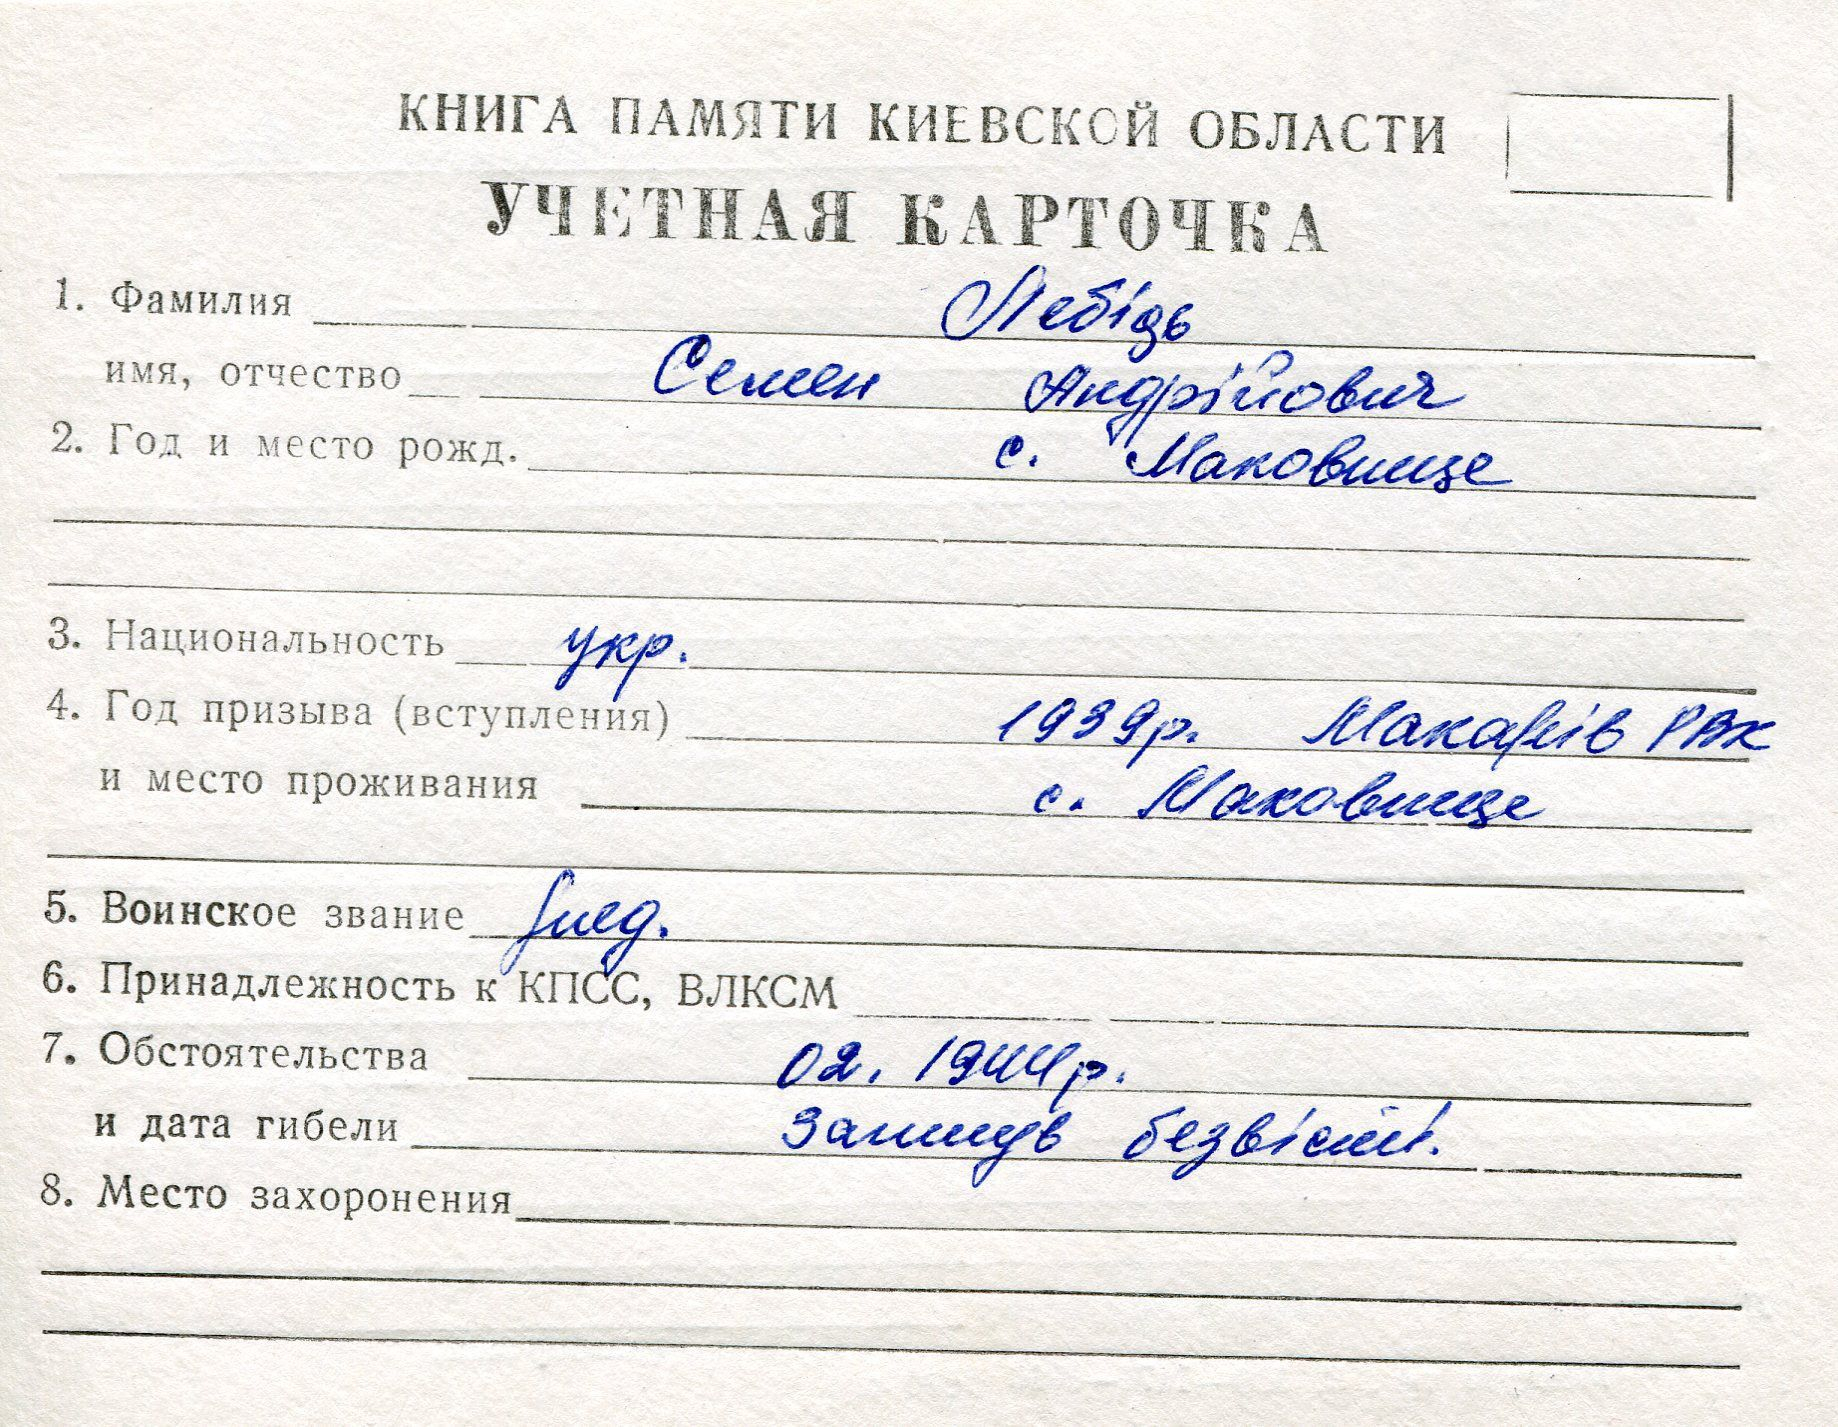 КНИГА ПАМЯТИ КИЕВСКОЙ ОБЛАСТИ
УЧЕТНАЯ КАРТОЧКА
1. Фамилия Лебідь
имя, отчество Семен Андрійович
2. Год и место рожд. с. Маковище
3. Национальность укр.
4. Год призыва (вступления) 1939р. Макарів РВК
и место проживания с. Маковище
5. Воинское звание
6. Принадлежность к КПСС, ВЛКСМ
7. Обстоятельства 02. 1944р.
и дата гибели Загинув безвісті.
8. Место захоронения